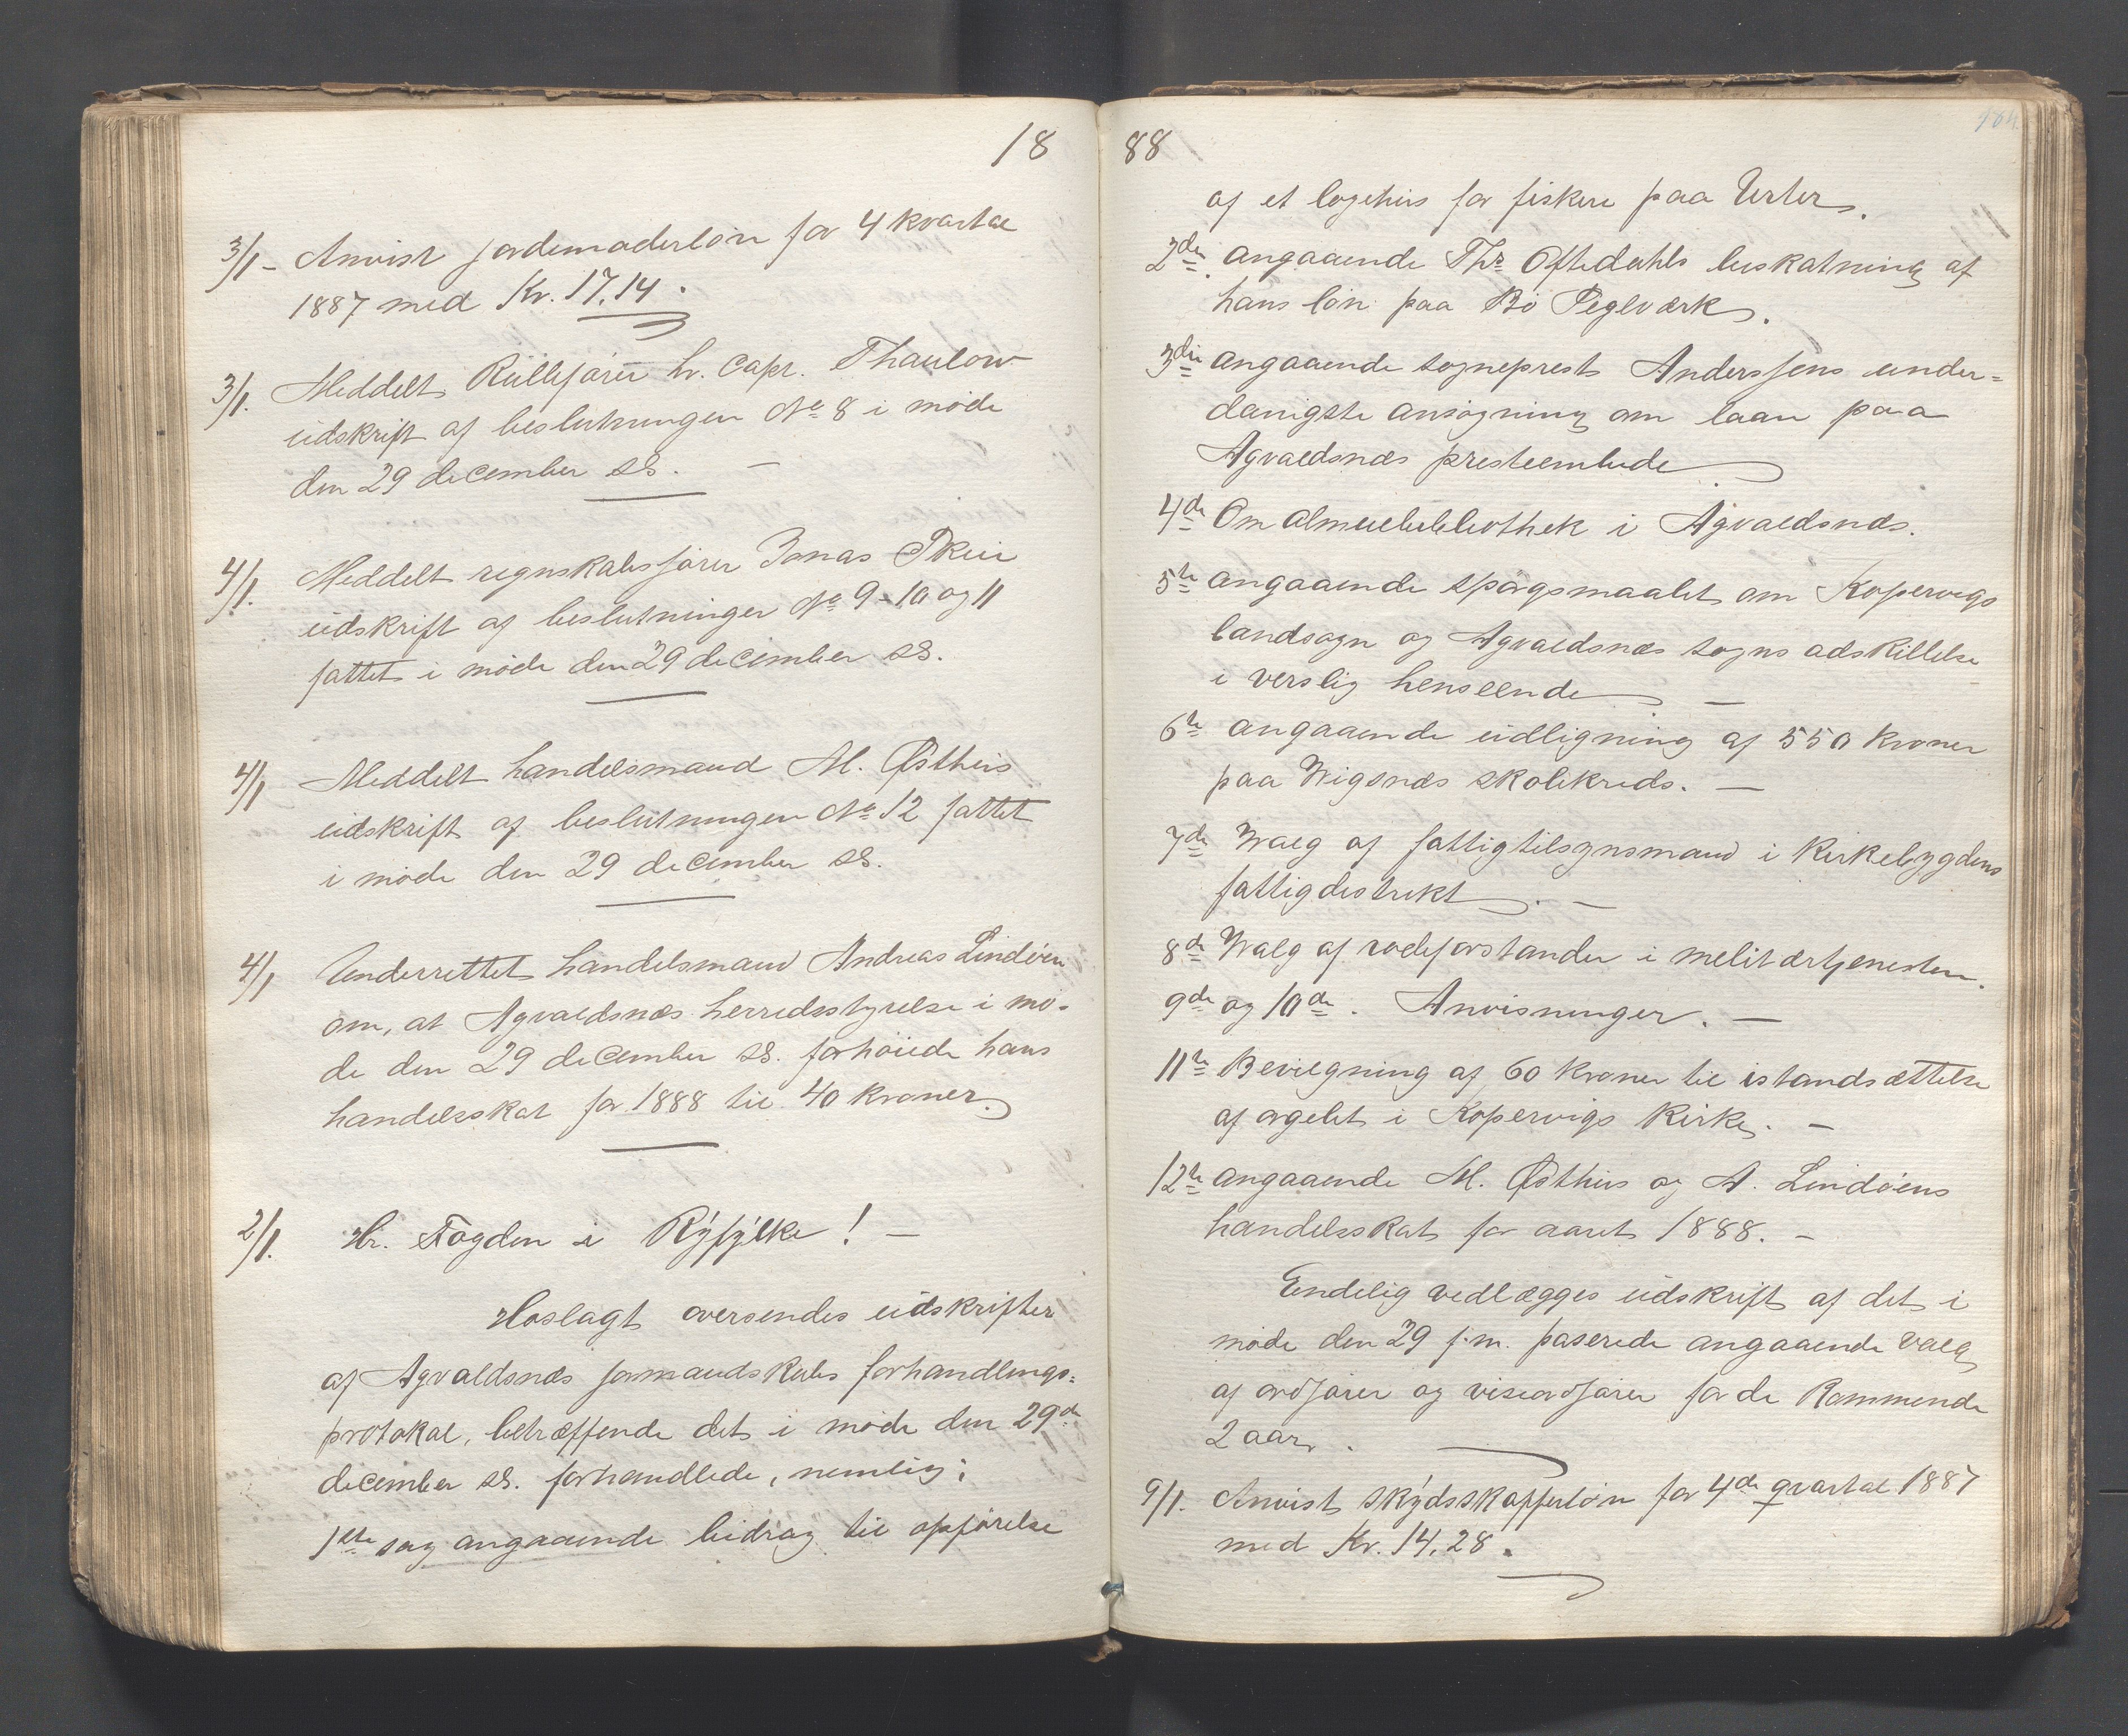 18
3/1 - Anvist jordemoderløn for 4 kvartal
1887 med Kr. 17.14.
3/1. Meddelt Rullefører hr. Capt. Thaulow
udskrift af beslutningen No 8 i møde
den 29 december ss. —
4/1. Meddelt regnskabsfører Jonas Skeie
udskrift af beslutninger No 9-10 og 11
fattet i møde den 29 december ss.
4/1 Meddelt handelsmand M. Østhus
udskrift af beslutningen No 12 fattet
i møde den 29 december ss.
4/1 Underrettet handelsmand Andreas Lindøen
om, at Agvaldsnæs herredsstyrelse i mø-
de den 29 december ss. forhøiede hans
handelsskat for 1888 til 40 kroner.
2/1. Hr. Fogden i Ryfylke! —
Hoslagt oversendes udskrifter
af Agvaldsnæs formandskabs forhandlings=
protokol, betræffende det i møde den 29de
december ss. forhandlede, nemlig:
1ste sag angaaende bidrag til opførelse
88
184.
af et logehus for fiskere paa Urter.
2den angaaende Thr Oftedahls beskatning af
hans løn paa Bø Teglværk.
3die angaaende sogneprest Anderssens under=
danigste ansøgning om laan paa
Agvaldsnæs presteembede
4de Om almuebibliothek i Agvaldsnæs.
5te angaaende spørgsmaalet om Kopervigs
landsogn og Agvaldsnæs sogns adskillelse
i verslig henseende —
6te angaaende udligning af 550 kroner
paa Wigsnæs skolekreds. —
7de Valg af fattigtilsynsmand i Kirkebygdens
fattigdistrikt. —
8de Valg af rodeforstander i melitærtjenesten.
9de og 10de. Anvisninger. —
11te Bevilgning af 60 kroner til istandsættelse
af orgelet i Kopervigs Kirke. —
12te angaaende M. Østhus og A. Lindøens
handelsskat for aaret 1888. —
Endelig vedlægges udskrift af det i
møde den 29 f.m. paserede angaaende valg
af ordfører og viseordfører for de kommende
2 aar.
9/1. Anvist skydsskafferløn for 4de qvartal 1887
med Kr. 14.28.